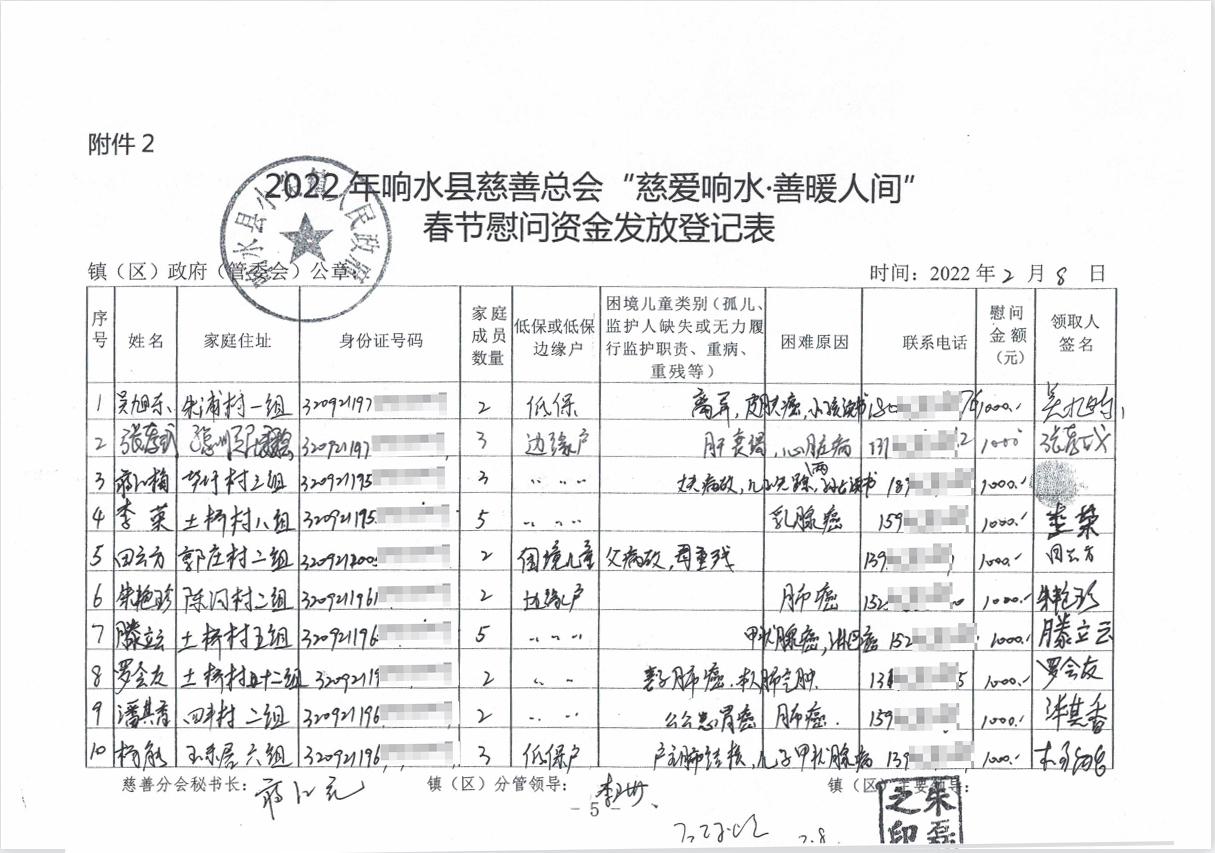 附件2
2022年响水县慈善总会“慈爱响水·善暖人间”
春节慰问资金发放登记表
镇（区）政府（管委会）公章： 时间：2022年2月8日
序号 姓名 家庭住址 身份证号码 家庭成员数量 低保或低保边缘户 困境儿童类别（孤儿、监护人缺失或无力履行监护职责、重病、重残等） 困难原因 联系电话 慰问金额（元） 领取人签名
1 吴旭东 朱浦村一组 320921197 2 低保 离异, 1000.-
2 320921197 3 边缘户 心脏病 1000
3 村三组 320921195 3 〃 〃 〃 189 1000.-
4 李荣 土桥村八组 320921195 5 〃 〃 〃 乳腺癌 159 1000.- 李荣
5 田云方 郭庄村二组 320921200 2 困境儿童 父病故,母重残 139 1000.- 田云方
6 朱艳珍 村二组 320921961 2 边缘户 肺癌 152 1000.- 朱艳珍
7 滕立云 土桥村五组 320921196 5 〃 〃 〃 甲状腺癌,淋巴癌 152 1000.- 滕立云
8 罗会友 土桥村十二组 32092119 2 〃 〃 妻子肺癌, 5 1000.- 罗会友
9 潘其香 村二组 320921196 2 〃 〃 〃 公公患胃癌 肺癌. 159 1000.- 潘其香
10 六组 320921196 3 低保户 肺结核,儿子甲状腺病 139 1000.-
慈善分会秘书长： 镇（区）分管领导： 镇（区）主要领导：
- 5 -
朱磊之印
2.8